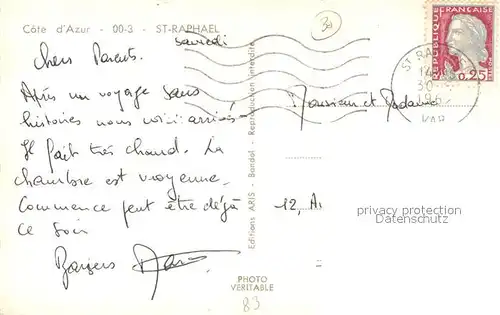 Côte d'Azur - 00-3 - ST-RAPHAEL
samedi
chers Parents.
Après un voyage sans
histoires nous voici arrivés
Il fait très chaud. La
chambre est moyenne.
Commence peut être déjà
ce soir
Baisers
PHOTO
VERITABLE
83
Editions ARIS - Bandol - Reproduction interdite
30
REPUBLIQUE FRANÇAISE
0,25
ST RA
VAR
Monsieur et Madame
12, A
privacy protection
Datenschutz